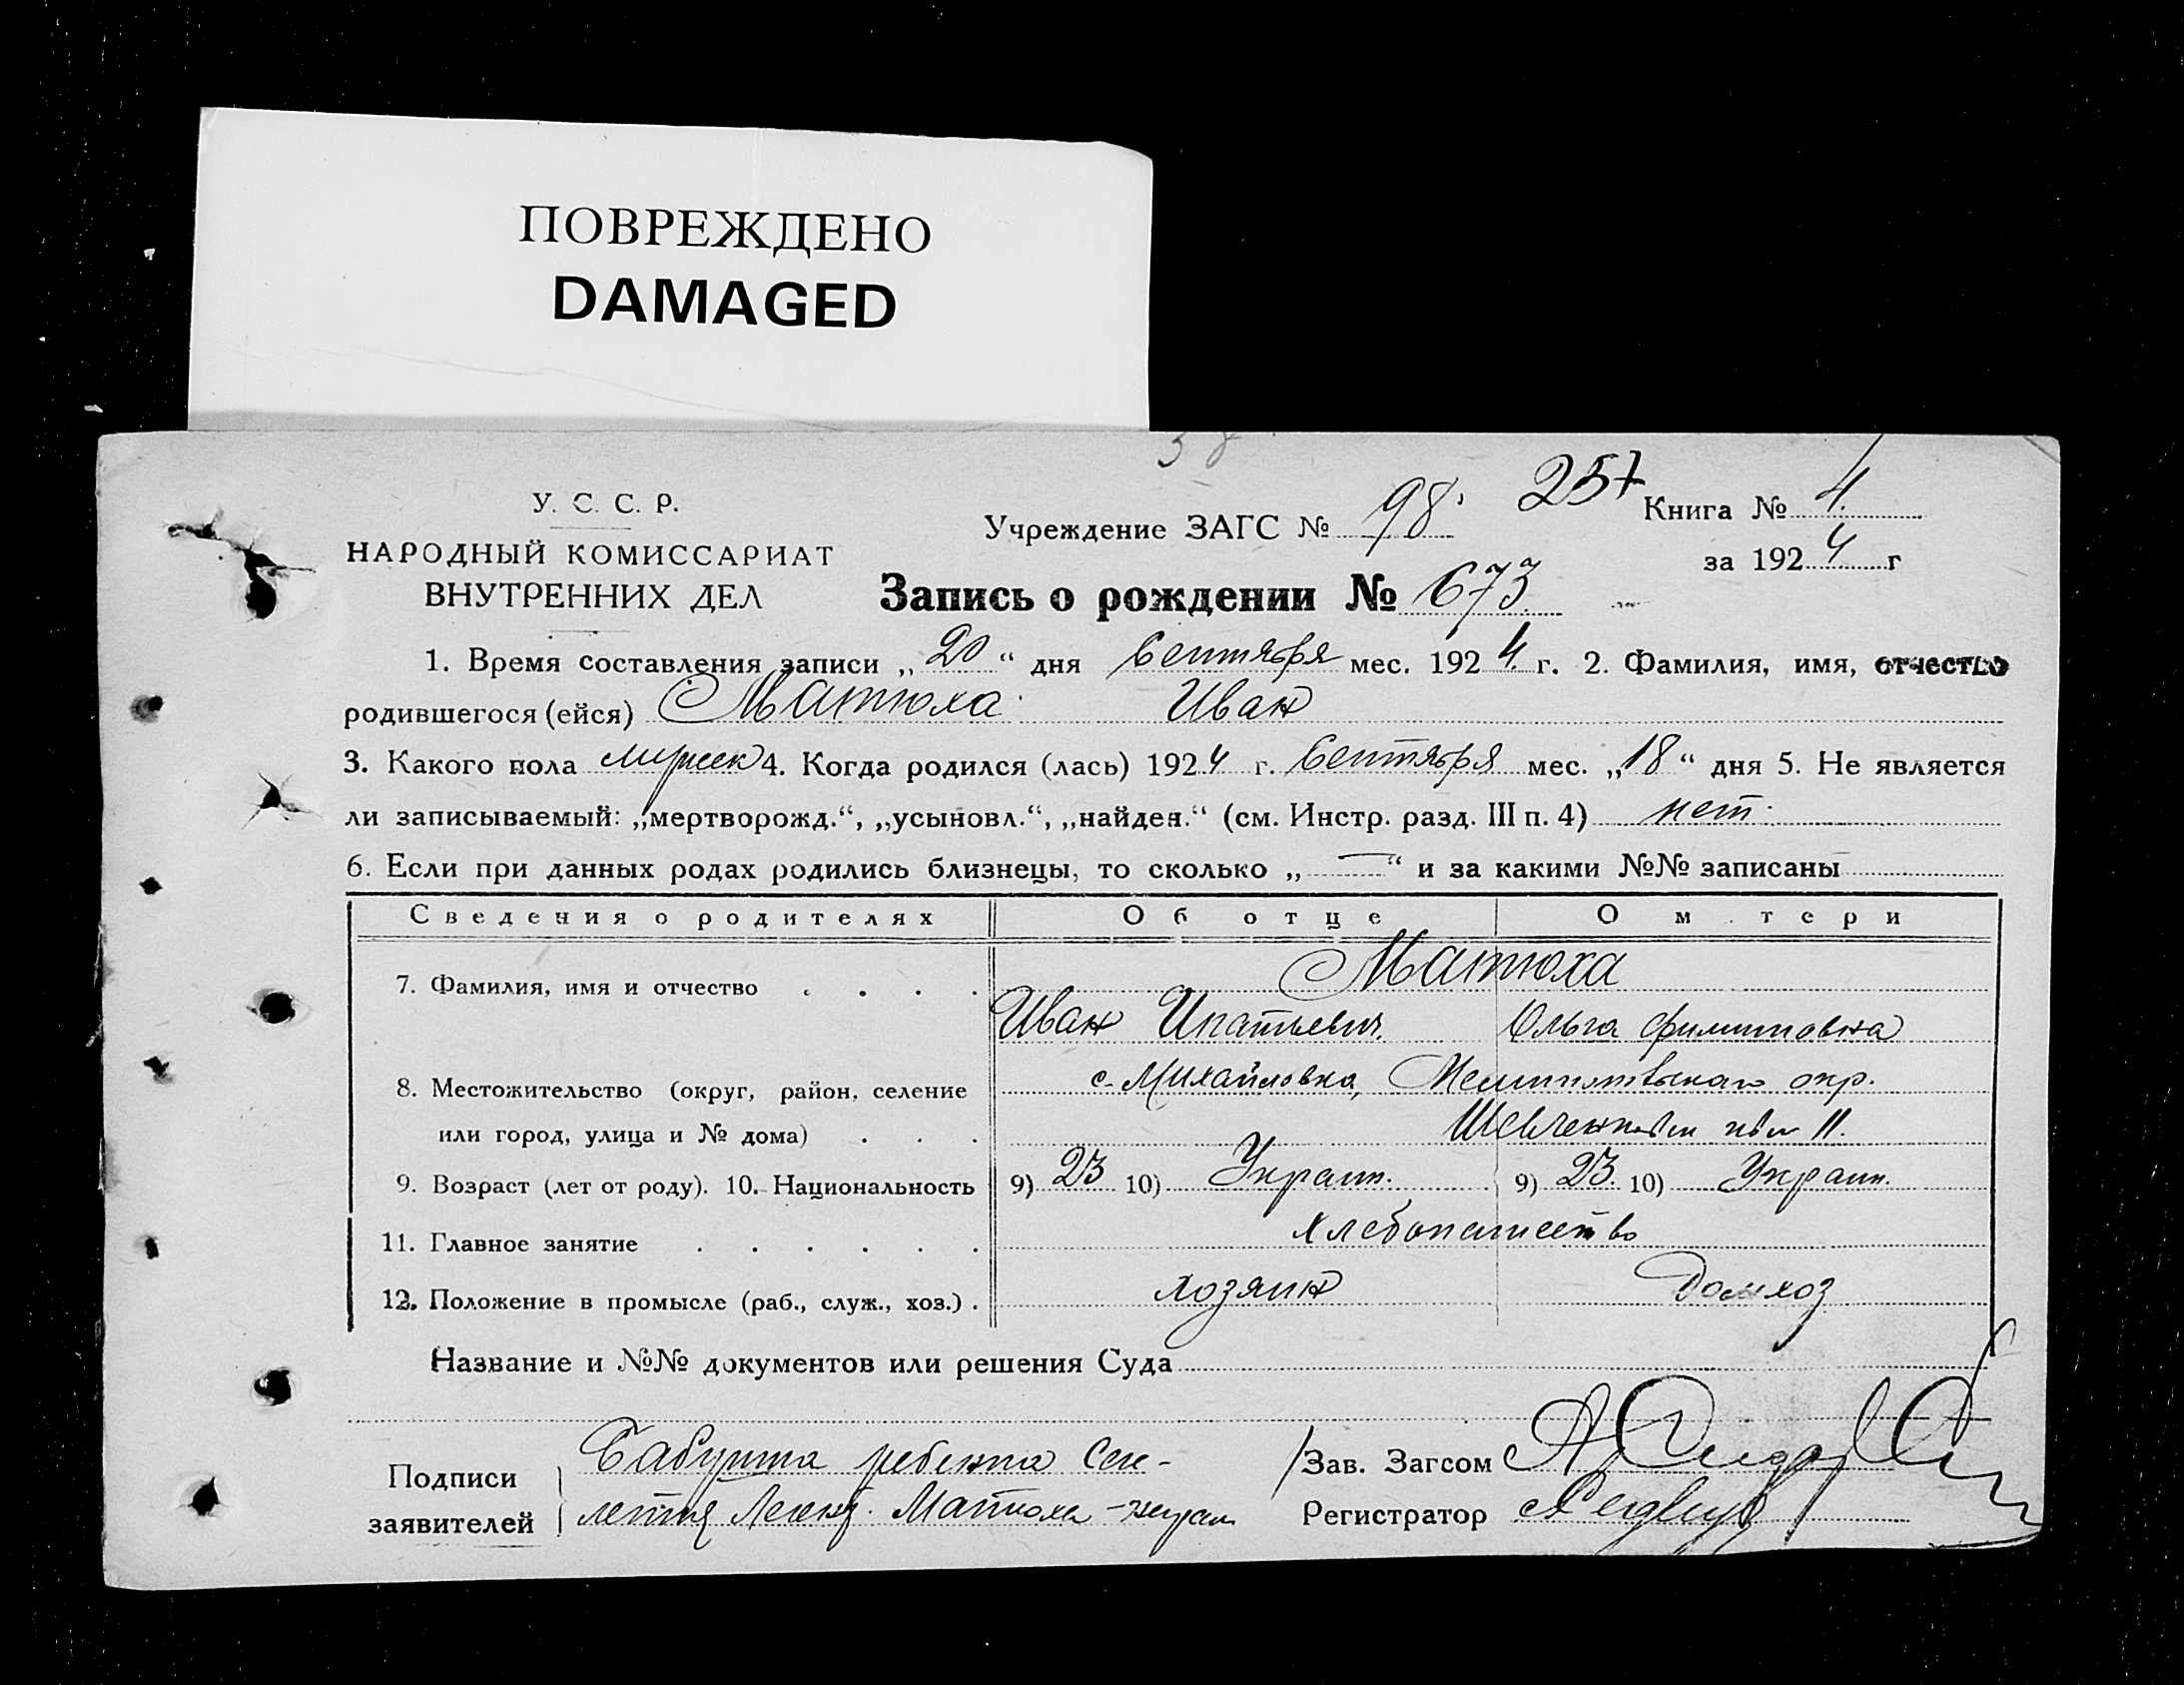 ПОВРЕЖДЕНО
DAMAGED
У. С. С. Р.
НАРОДНЫЙ КОМИССАРИАТ
ВНУТРЕННИХ ДЕЛ
Учреждение ЗАГС № 98. 257 Книга № 4.
за 1924 г
Запись о рождении № 673
1. Время составления записи „20“ дня Сентября мес. 1924 г. 2. Фамилия, имя, отчество
родившегося (ейся) Матюха Иван
3. Какого пола мужск 4. Когда родился (лась) 1924 г. Сентября мес. „18“ дня 5. Не является
ли записываемый: „мертворожд.“, „усыновл.“, „найден.“ (см. Инстр. разд. III п. 4) нет.
6. Если при данных родах родились близнецы, то сколько „—“ и за какими №№ записаны
Сведения о родителях Об отце О м тери
7. Фамилия, имя и отчество . . . . Матюха
Иван Ипатьевич. Ольга Филипповна
8. Местожительство (округ, район, селение с. Михайловка, Мелитопольского окр.
или город, улица и № дома) . . .
9. Возраст (лет от роду). 10. Национальность 9) 23 10) Украин. 9) 23. 10) Украин.
11. Главное занятие . . . . . . хлебопашество
12. Положение в промысле (раб., служ., хоз.) . хозяин Домхоз
Название и №№ документов или решения Суда
Подписи Бабушка ребенка
заявителей Матюха
Зав. Загсом
Регистратор